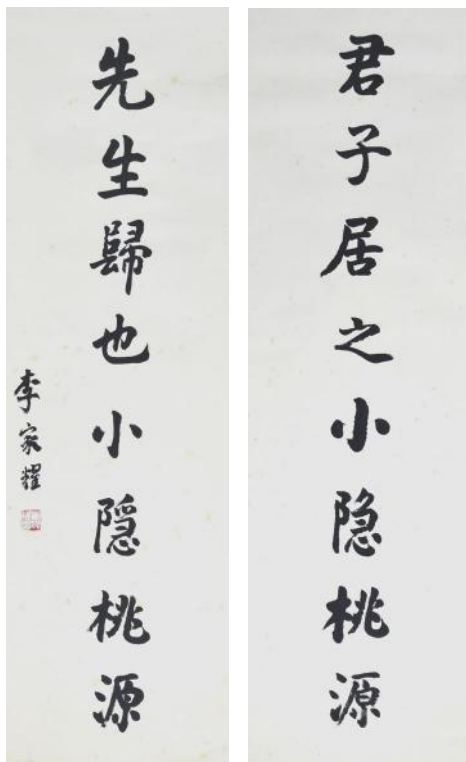 君子居之小隐桃源
先生歸也小隠桃源
李家耀